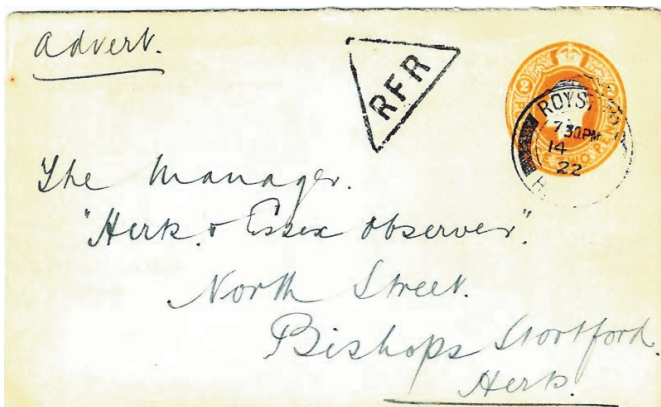 Advert.
RFR
2
TWO PEN
ROYST
7 30PM
14
22
H
The Manager.
"Herts. & Essex Observer".
North Street.
Bishops Stortford.
Herts.